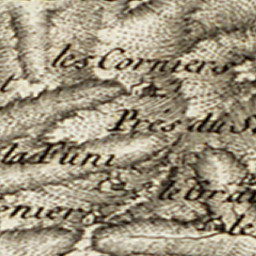 les Corniers
Pres du S
la Funi
le Gra
eniers
le